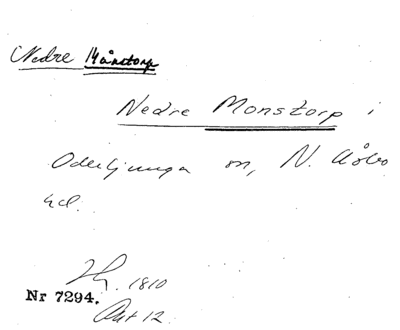 Nedre Månstorp
Nedre Monstorp i
Oderljunga sn, N. Åsbo
hd.
1810
Nr 7294.
Akt 12